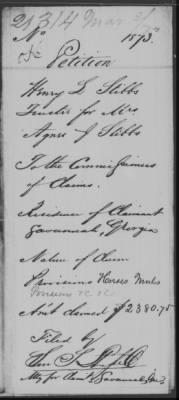 21314 Mar 2/
No 1873.
Petition
Henry L Stibbs
Trustee for Mrs
Agnes J Stibbs
To the Commissioners
of Claims.
Residence of Claimant
Savannah, Georgia
Nature of Claim
Provisions Horses Mules
Amt claimed $2380.75
Filed by
Atty for Claimt Savannah Ga.